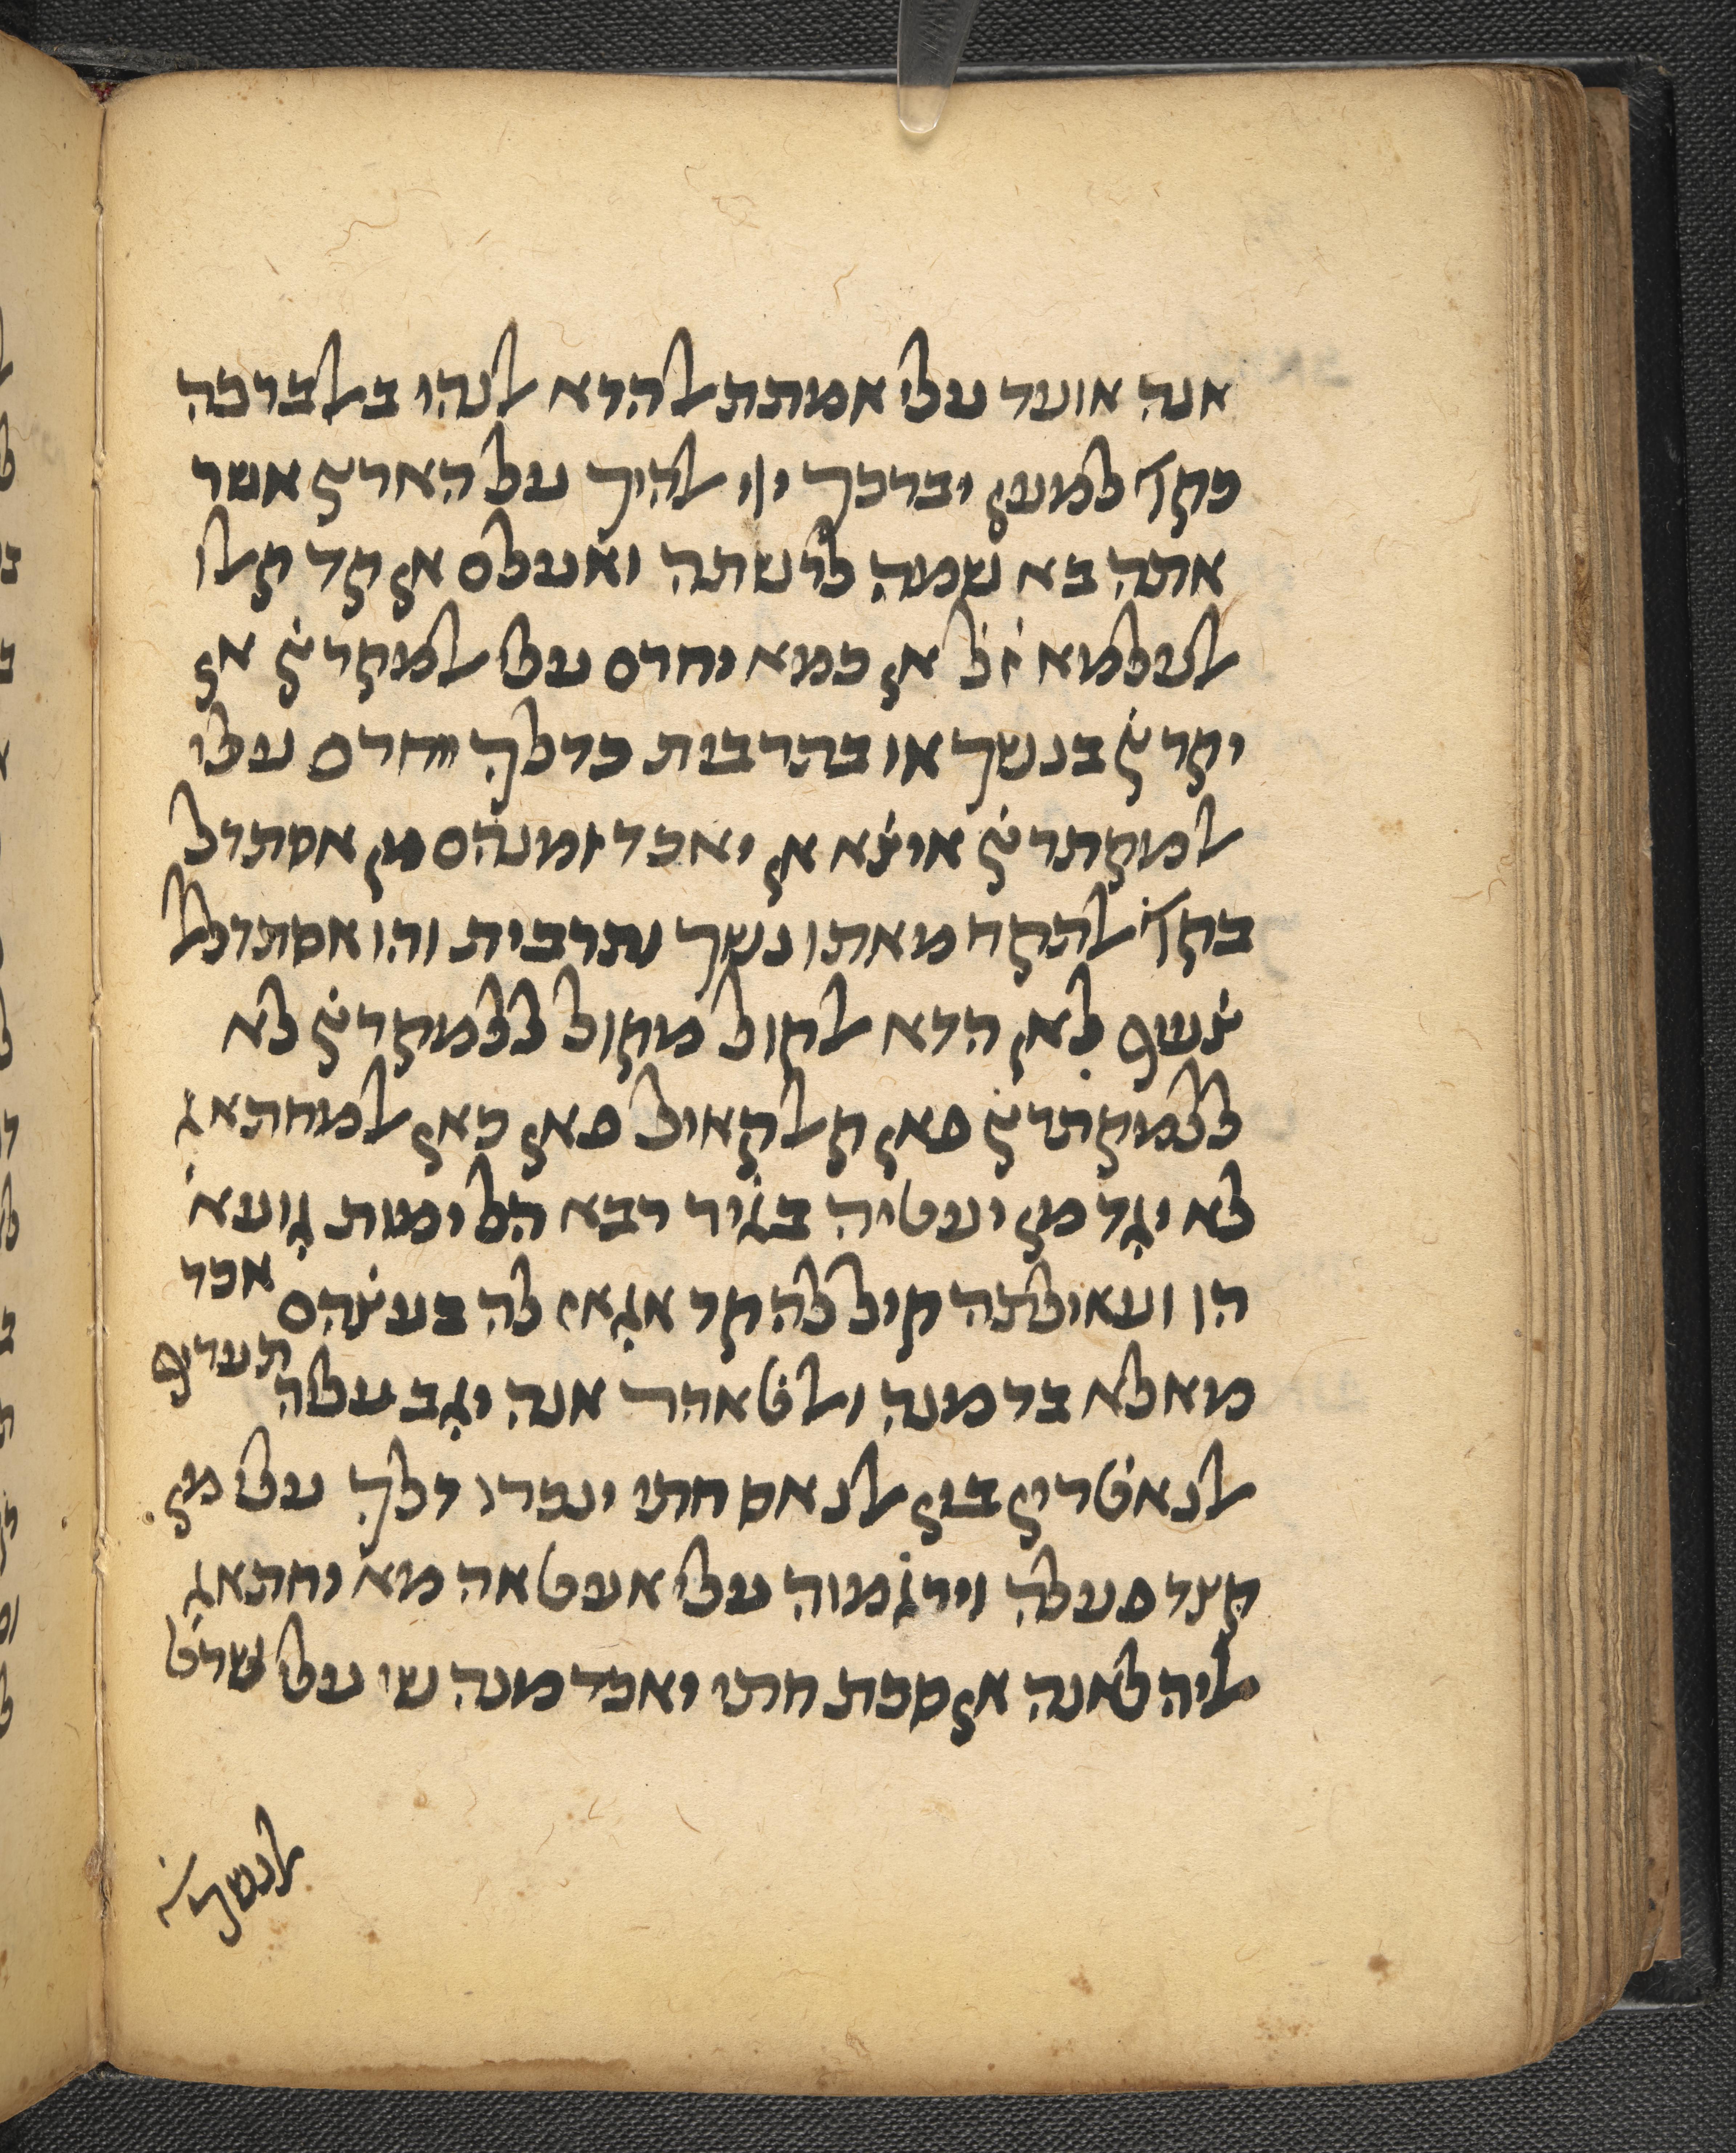 אנה אועד עלי אמתתﭏ הדא ﭏנהי בﭏברכה
כקו' למען יברכך ייי ﭏהיך על הארץ אשר
אתה בא שמה לרשתה ואעלם אן קד קﭏו
ﭏעלמא ז̇ל אן כמא יחרם עלי ﭏמקרץ̇ אן
יקרץ̇ בנשך או בתרבית כדלך ייחרם עלי
ﭏמקתרץ̇ איצ̇א אן יאכד ומנהם מן אסתדל
בקו' ﭏ תקח מאתו נשך ותרבית והו אסתדלﭏ
צ̇עף לאן הדא ﭏקול מקול ללמקרץ̇ לא
ללמקתרץ̇ פאן קﭏ קאיל פאן כאן ﭏמחתאג̇
לא יג̇ד מן יעטיה בג̇יר רבא הל ימות ג̇ועא
הו ועאילתה קיל לה קד אג̇אז לה בעצ̇הם אכד
מא לא בד מנה וﭏט̇אהר אנה יג̇ב עליה תעריף
ﭏנאט̇רין בין ﭏנאס חתי ינכרו דלך עלי מן
קצד פעלה וירג̇מוה עלי אעטאה מא יחתאג̇
ﭏיה לאנה אן סכת חתי יאכד מנה שי עלי שרט
ﭏנשך